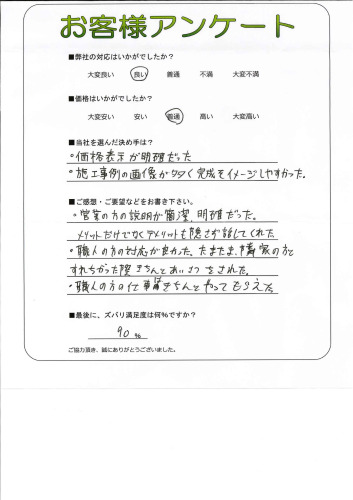 お客様アンケート
■弊社の対応はいかがでしたか?
大変良い 良い 普通 不満 大変不満
■価格はいかがでしたか?
大変安い 安い 普通 高い 大変高い
■当社を選んだ決め手は?
・価格表示が明確だった
・施工事例の画像が多く完成をイメージしやすかった。
■ご感想・ご要望などをお書き下さい。
・営業の方の説明が簡潔、明確だった。
メリットだけでなくデメリットも隠さず話してくれた。
・職人の方の対応が良かった。たまたま隣家の方と
すれちがった際きちんとあいさつをされた。
・職人の方の仕事がきちんとやってもらえた
■最後に、ズバリ満足度は何%ですか?
90 %
ご協力頂き、誠にありがとうございました。